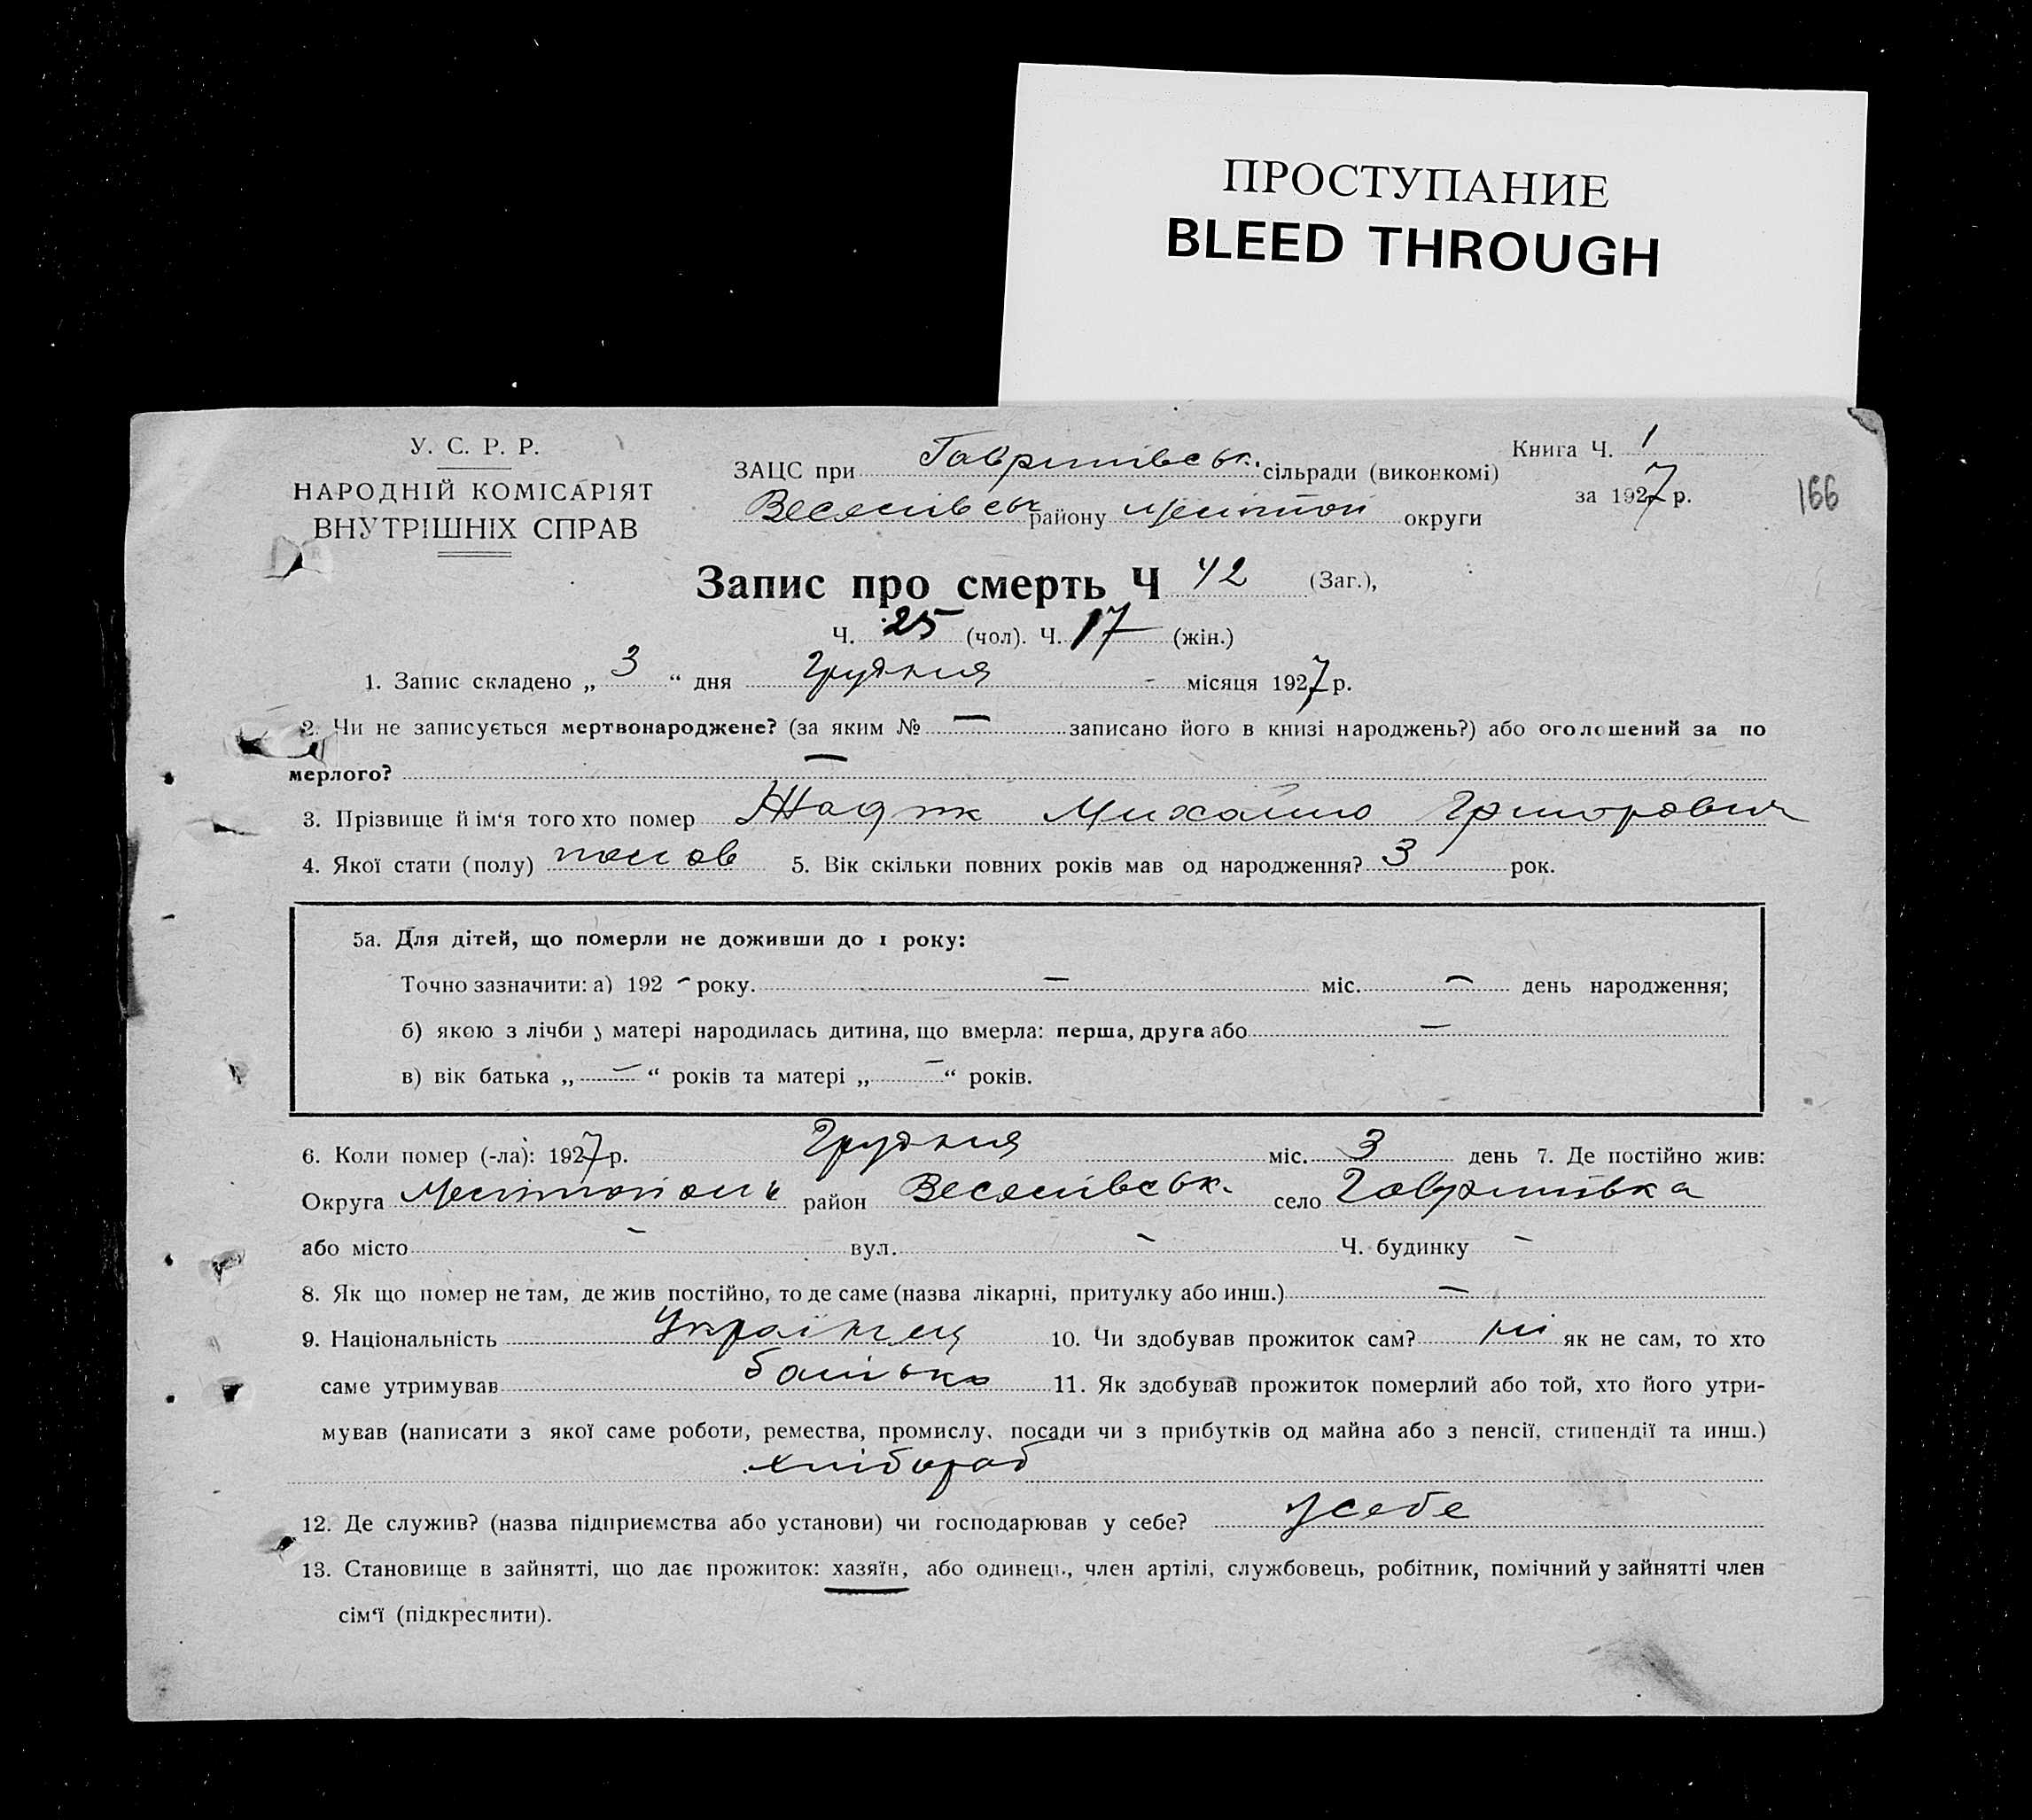 ПРОСТУПАНИЕ
BLEED THROUGH
У. С. Р. Р.
НАРОДНІЙ КОМІСАРІЯТ
ВНУТРІШНІХ СПРАВ
ЗАЦС при Гаврилівськ. сільради (виконкомі)
Веселівськ району Мелітоп округи
Книга Ч. 1
за 1927 р.
166
Запис про смерть Ч 42 (Заг.),
Ч. 25 (чол). Ч. 17 (жін.)
1. Запис складено „ 3 “ дня Грудня - місяця 1927 р.
2. Чи не записується мертвонароджене? (за яким № — записано його в книзі народжень?) або оголошений за по
мерлого? —
3. Прізвище й ім‘я того хто помер Михайло Григорович
4. Якої стати (полу) 5. Вік скільки повних років мав од народження? 3 рок.
5а. Для дітей, що померли не доживши до 1 року:
Точно зазначити: а) 192 - року. — міс. — день народження;
б) якою з лічби у матері народилась дитина, що вмерла: перша, друга або —
в) вік батька „ — “ років та матері „ — “ років.
6. Коли помер (-ла): 1927 р. Грудня міс. 3 день 7. Де постійно жив:
Округа район Веселівськ. село Гаврилівка
або місто - вул. - Ч. будинку -
8. Як що помер не там, де жив постійно, то де саме (назва лікарні, притулку або инш.) —
9. Національність Українец 10. Чи здобував прожиток сам? ні як не сам, то хто
саме утримував батько 11. Як здобував прожиток померлий або той, хто його утри-
мував (написати з якої саме роботи, ремества, промислу, посади чи з прибутків од майна або з пенсії, стипендії та инш.)
хлібороб
12. Де служив? (назва підприємства або установи) чи господарював у себе? у себе
13. Становище в зайнятті, що дає прожиток: хазяїн, або одинець, член артілі, службовець, робітник, помічний у зайнятті член
сім‘ї (підкреслити).